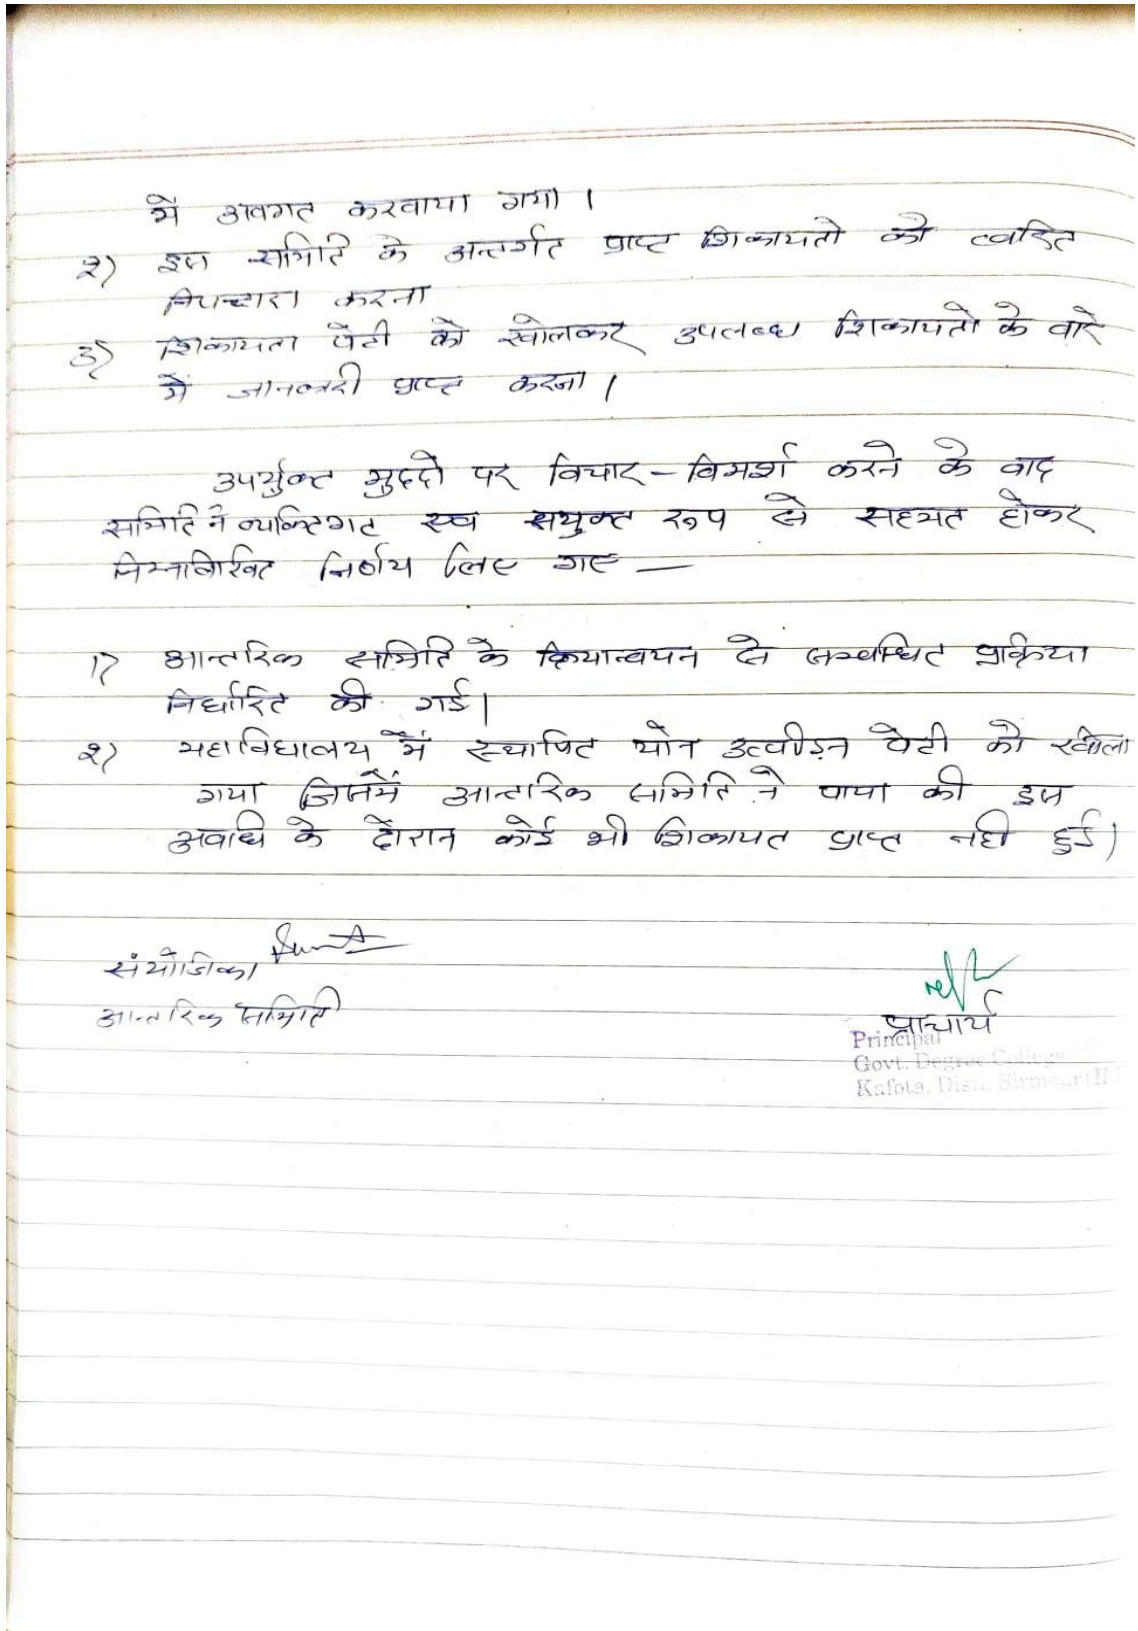 में अवगत करवाया गया ।
२) इस समिति के अन्तर्गत प्राप्त शिकायतो को त्वरित
निपटारा करना
३) शिकायता पेटी को खोलकर उपलब्ध शिकायतो के बारे
में जानकारी प्राप्त करना ।
उपर्युक्त मुद्दो पर विचार - विमर्श करने के बाद
समिति ने व्यक्तिगत एवं सयुक्त रूप से सहमत होकर
निम्नलिखित निर्णय लिए गए —
1) आन्तरिक समिति के क्रियान्वयन से सम्बन्धित प्रक्रिया
निर्धारित की गई।
२) महाविधालय में स्थापित योन उत्पीड़न पेटी को खोला
गया जिसमें आन्तरिक समिति ने पाया की इस
अवधि के दौरान कोई भी शिकायत प्राप्त नही हुई।
संयोजिका
आन्तरिक समिति
प्राचार्य
Principal
Govt. Degree College
Kafota, Distt. Sirmour (H.